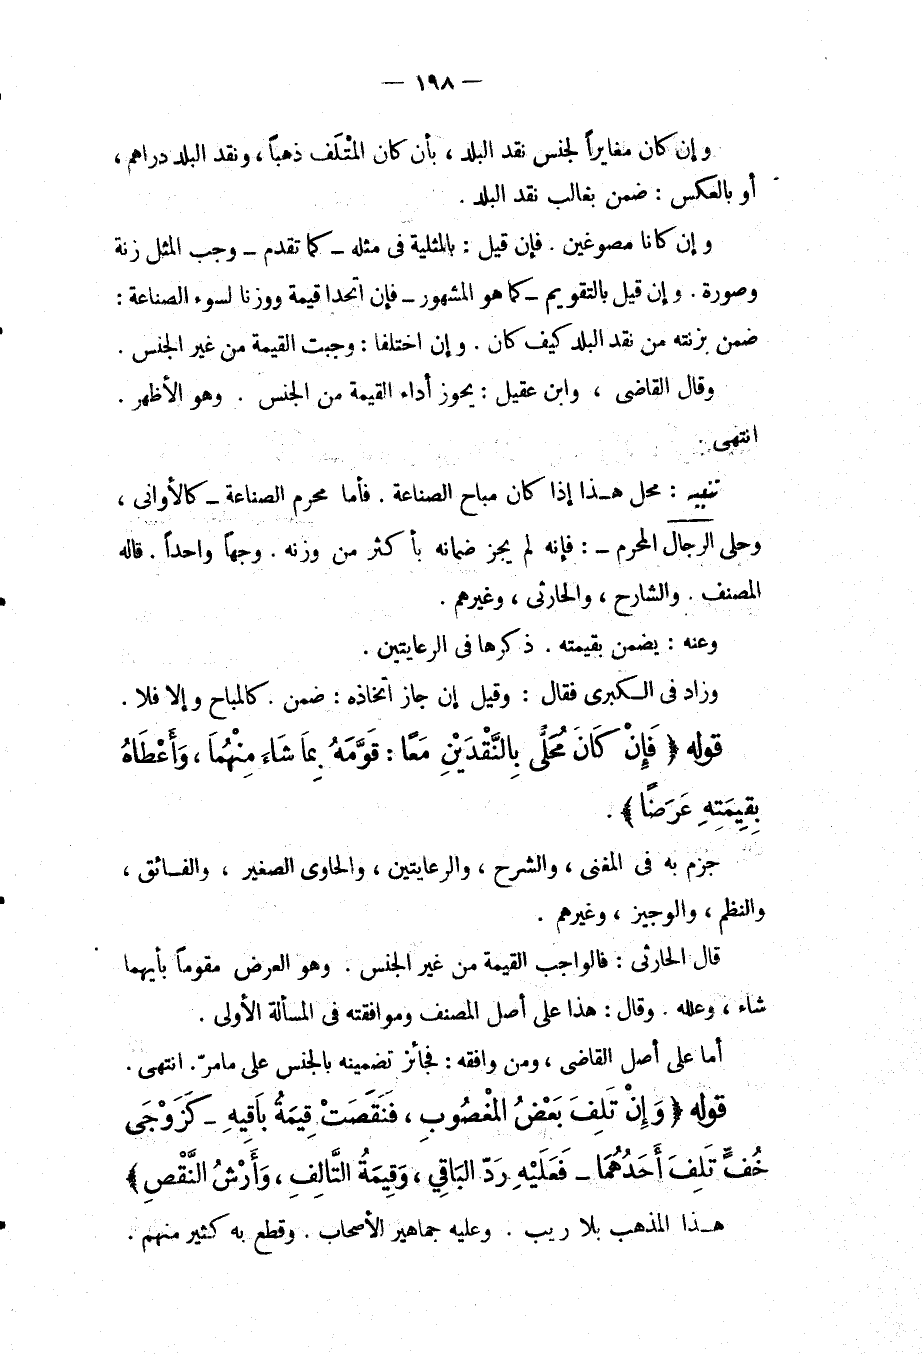 — ١٩٨ —
وإن كان مغايراً لجنس نقد البلد ، بأن كان المتْلَف ذهباً ، ونقد البلد دراهم ،
أو بالعكس : ضمن بغالب نقد البلد .
وإن كانا مصوغين . فإن قيل : بالمثلية فى مثله – كما تقدم – وجب المثل زنة
وصورة . وإن قيل بالتقويم – كما هو المشهور – فإن اتحدا قيمة ووزنا لسوء الصناعة :
ضمن بزنته من نقد البلد كيف كان . وإن اختلفا : وجبت القيمة من غير الجنس .
وقال القاضى ، وابن عقيل : يجوز أداء القيمة من الجنس . وهو الأظهر .
انتهى .
تنبيه : محل هـذا إذا كان مباح الصناعة . فأما محرم الصناعة – كالأوانى ،
وحلى الرجال المحرم – : فإنه لم يجز ضمانه بأكثر من وزنه . وجهاً واحداً . قاله
المصنف . والشارح ، والحارثى ، وغيرهم .
وعنه : يضمن بقيمته . ذكرها فى الرعايتين .
وزاد فى الـكبرى فقال : وقيل إن جاز اتخاذه : ضمن . كالمباح وإلا فلا .
قوله ﴿ فَإِنْ كَانَ مُحَلًّى بِالنَّقْدَيْنِ مَعًا : قَوَّمَهُ بِمَا شَاءَ مِنْهُمَا ، وَأَعْطَاهُ
بِقِيمَتِهِ عَرَضًا ﴾ .
جزم به فى المغنى ، والشرح ، والرعايتين ، والحاوى الصغير ، والفـائق ،
والنظم ، والوجيز ، وغيرهم .
قال الحارثى : فالواجب القيمة من غير الجنس . وهو العرض مقوماً بأيهما
شاء ، وعلله . وقال : هذا على أصل المصنف وموافقته فى المسألة الأولى .
أما على أصل القاضى ، ومن وافقه : فجائز تضمينه بالجنس على مامرّ . انتهى .
قوله ﴿ وَإِنْ تَلِفَ بَعْضُ المَغْصُوبِ ، فَنَقَصَتْ قِيمَةُ بَاقِيهِ – كَزَوْجَى
خُفٍّ تَلِفَ أَحَدُهُمَا – فَعَلَيْهِ رَدّ البَاقِي ، وَقِيمَةُ التَّالِفِ ، وَأَرْشُ النَّقْصِ ﴾
هـذا المذهب بلا ريب . وعليه جماهير الأصحاب . وقطع به كثير منهم .